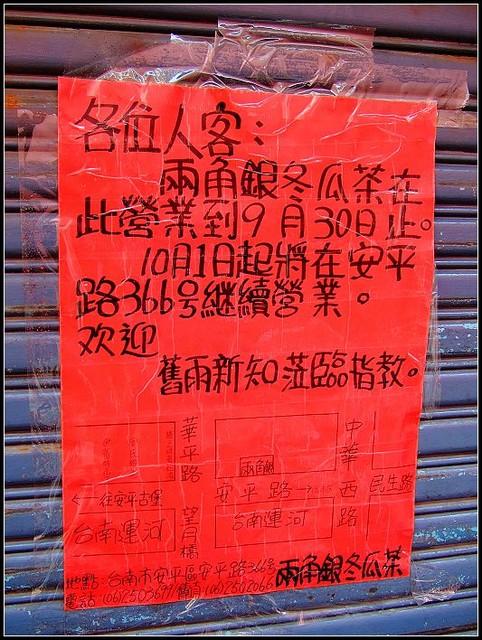 各位人客：
兩角銀冬瓜茶在
此營業到9月30日止。
10月1日起將在安平
路366号繼續營業。
欢迎
舊雨新知蒞臨指教。
華平路
中華西路
兩角銀
安平路
民生路
←往安平古堡
望月橋
台南運河
台南運河
地點:台南市安平區安平路366号
兩角銀冬瓜茶